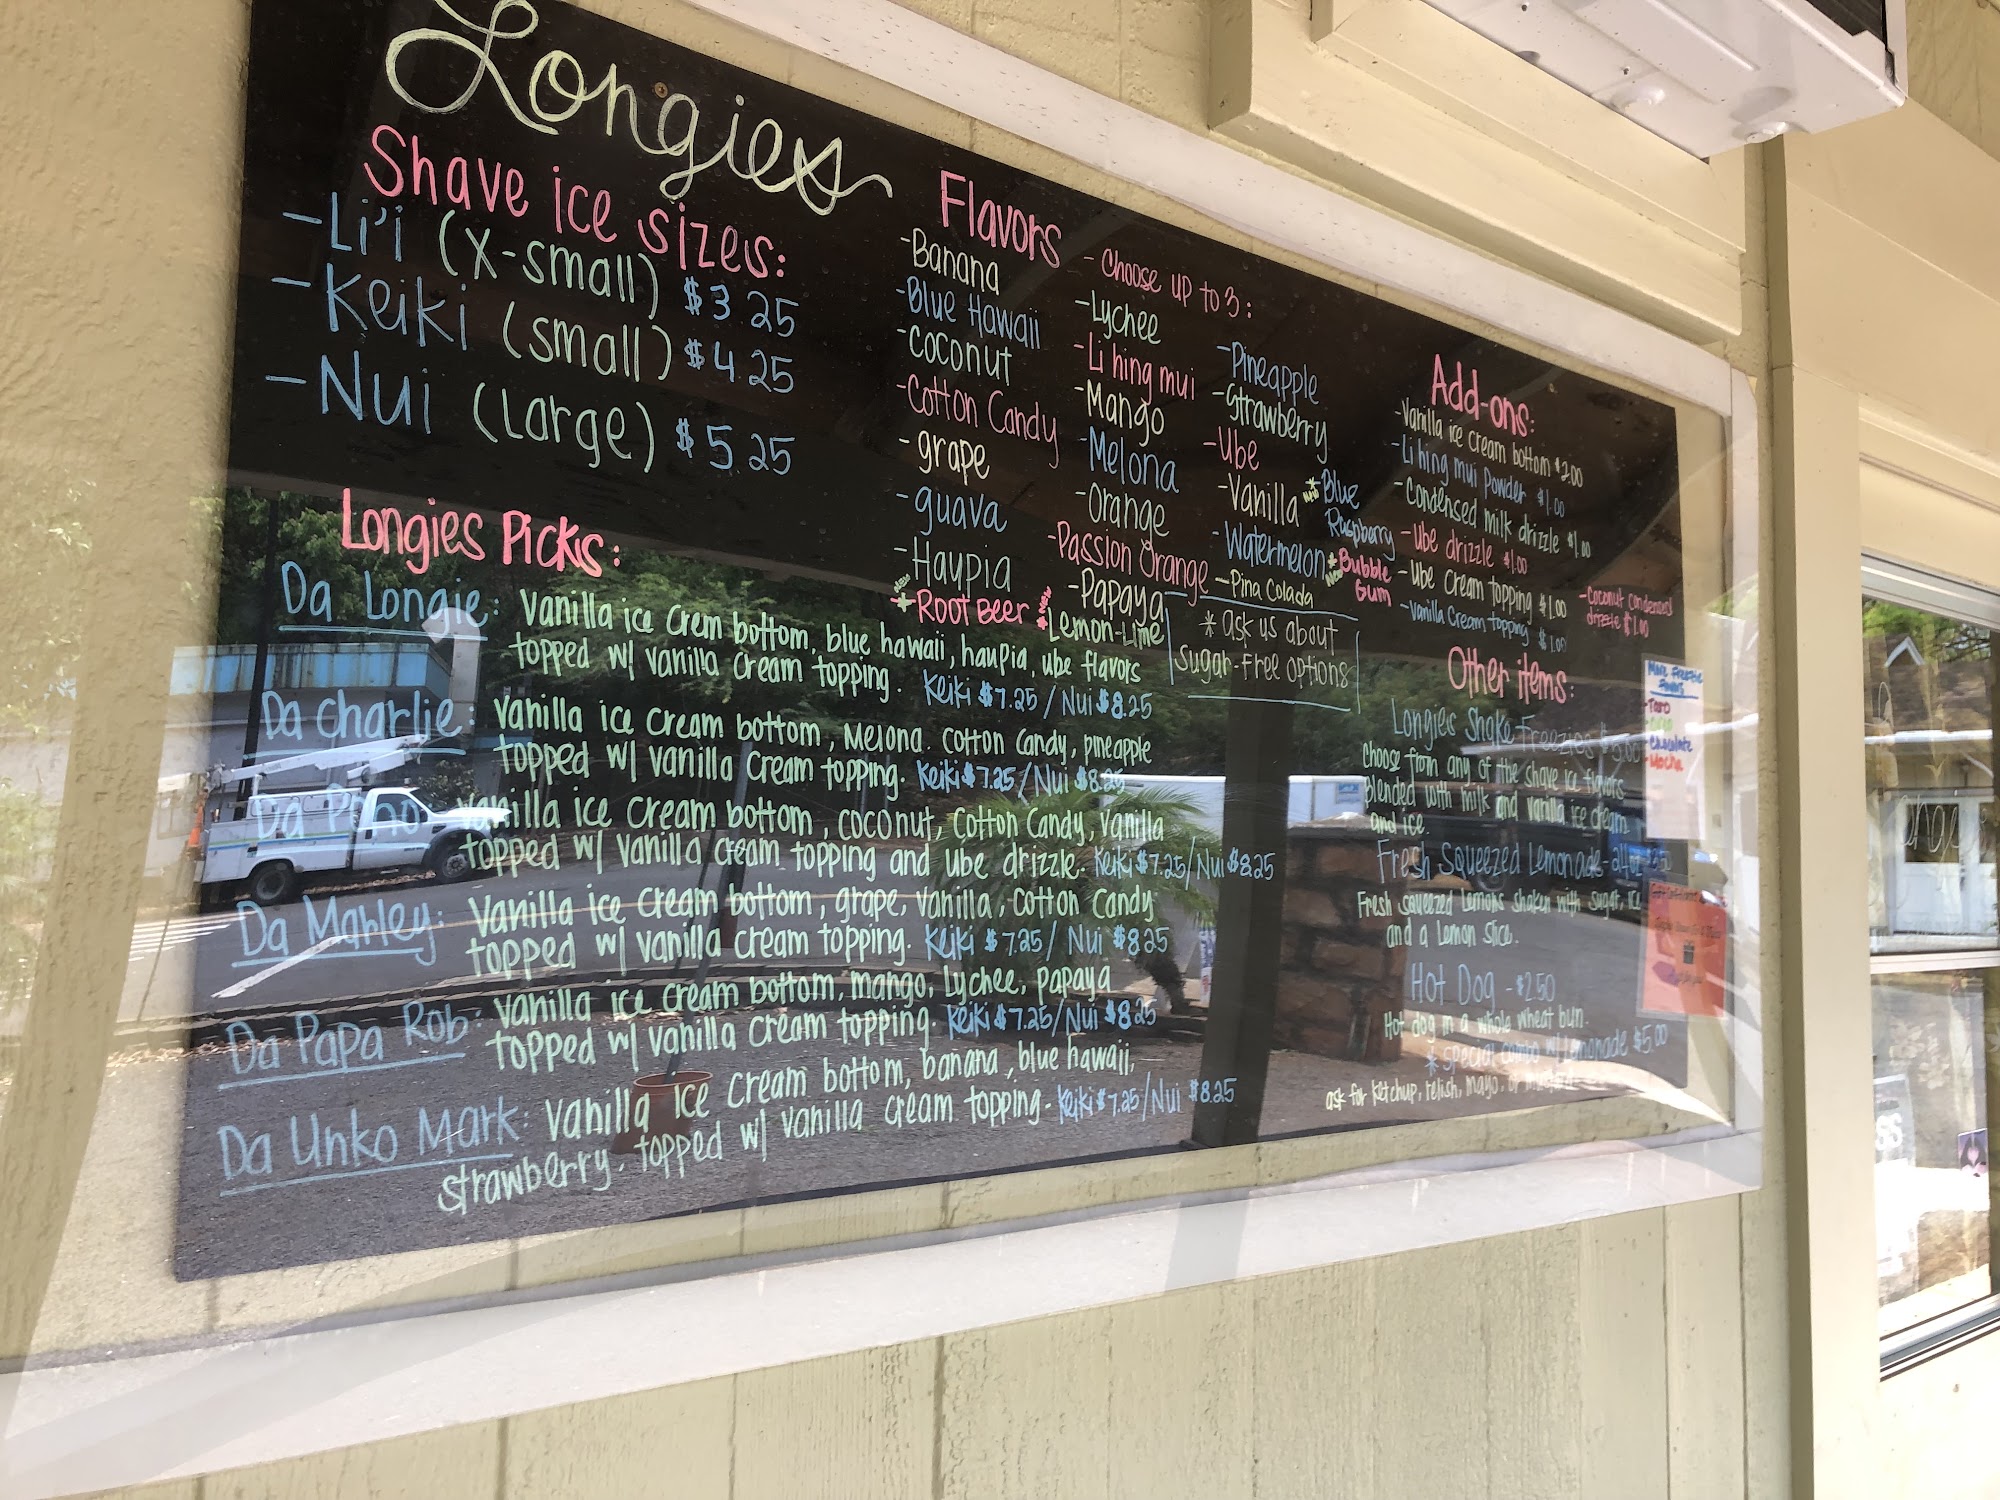 Longies
Shave ice sizes:
- Li'i (x-small) $3.25
- Keiki (small) $4.25
- Nui (Large) $5.25
Longies Picks:
Da Longie: Vanilla ice crem bottom, blue hawaii, haupia, ube flavors
topped w/ vanilla cream topping. Keiki $7.25/Nui $8.25
Da Charlie: Vanilla ice cream bottom, Melona, cotton candy, pineapple
topped w/ vanilla cream topping. Keiki $7.25/Nui $8.25
Da Vanilla ice cream bottom, coconut, cotton candy, vanilla
topped w/ vanilla cream topping and ube drizzle. Keiki $7.25/Nui $8.25
Da Marley: Vanilla ice cream bottom, grape, vanilla, cotton candy
topped w/ vanilla cream topping. Keiki $7.25/Nui $8.25
Da Papa Rob: Vanilla ice cream bottom, mango, Lychee, papaya
topped w/ vanilla cream topping. Keiki $7.25/Nui $8.25
Da Unko Mark: Vanilla ice cream bottom, banana, blue hawaii,
strawberry. topped w/ vanilla cream topping. Keiki $7.25/Nui $8.25
Flavors - Choose up to 3:
- Banana
- Blue Hawaii
- Coconut
- Cotton Candy
- grape
- guava
- Haupia
New * Root Beer
- Lychee
- Li hing mui
- Mango
- Melona
- Orange
- Passion Orange
- Papaya
New * Lemon-Lime
- Pineapple
- Strawberry
- Ube
- Vanilla
- Watermelon
- Pina Colada
New * Blue
Raspberry
New * Bubble
Gum
* ask us about
Sugar-Free options
Add-ons:
- Vanilla ice cream bottom $2.00
- Li hing mui powder $1.00
- Condensed milk drizzle $1.00
- Ube drizzle $1.00
- Ube cream topping $1.00
- Vanilla Cream topping $1.00
- Coconut condensed
drizzle $1.00
Other items:
Longies Shake Freezies
Choose from any of the shave ice flavors
blended with milk and vanilla ice cream
and ice.
Fresh Squeezed Lemonade-24oz
Fresh squeezed Lemons shaken with sugar, ice
and a Lemon slice.
Hot Dog - $2.50
Hot dog in a whole wheat bun.
* Special combo w/ Lemonade $5.00
ask for ketchup, relish, mayo, or mustard
- Taro
- Chocolate
- Mocha